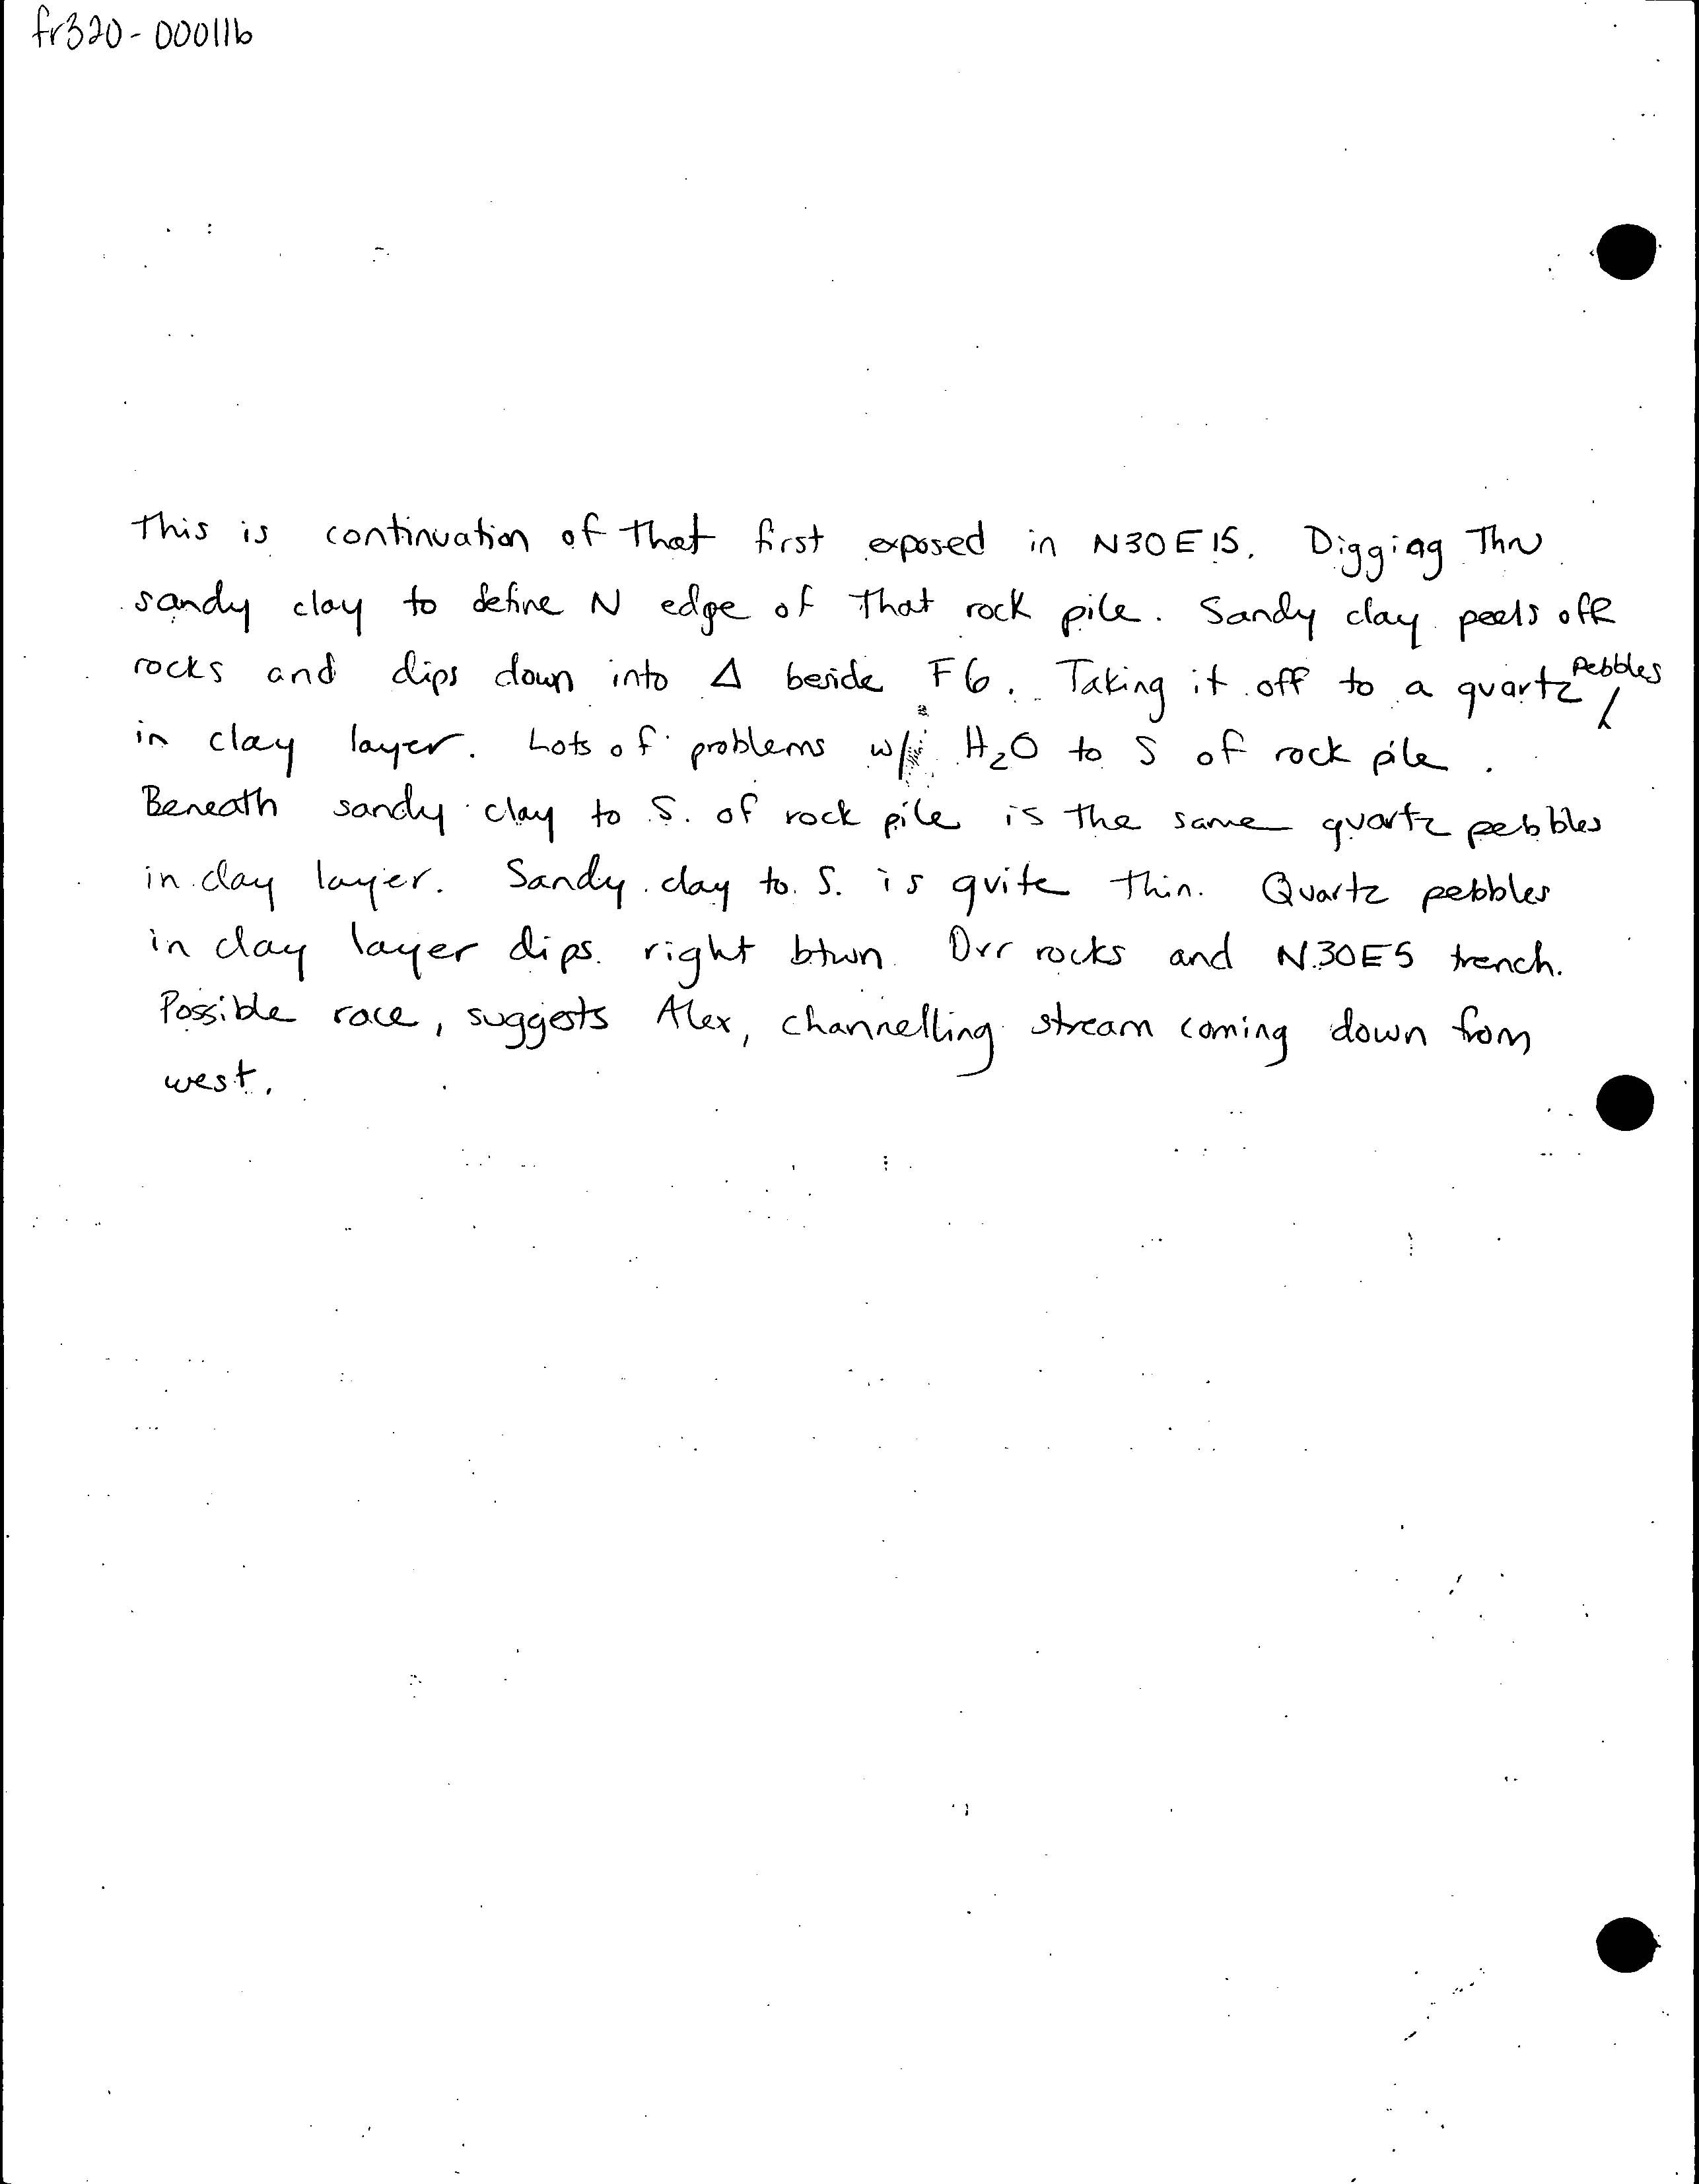 fr320-000116
This is continuation of that first exposed in N30E15. Digging Thru
sandy clay to define N edge of that rock pile. Sandy clay peels off
rocks and dips down into Δ beside F6. Taking it off to a quartz pebbles
in clay layer. Lots of problems w/ H₂O to S of rock pile.
Beneath sandy clay to S. of rock pile is the same quartz pebbles
in clay layer. Sandy clay to S. is quite thin. Quartz pebbles
in clay layer dips right btwn rocks and N30E5 trench.
Possible race, suggests Alex, channelling stream coming down from
west.